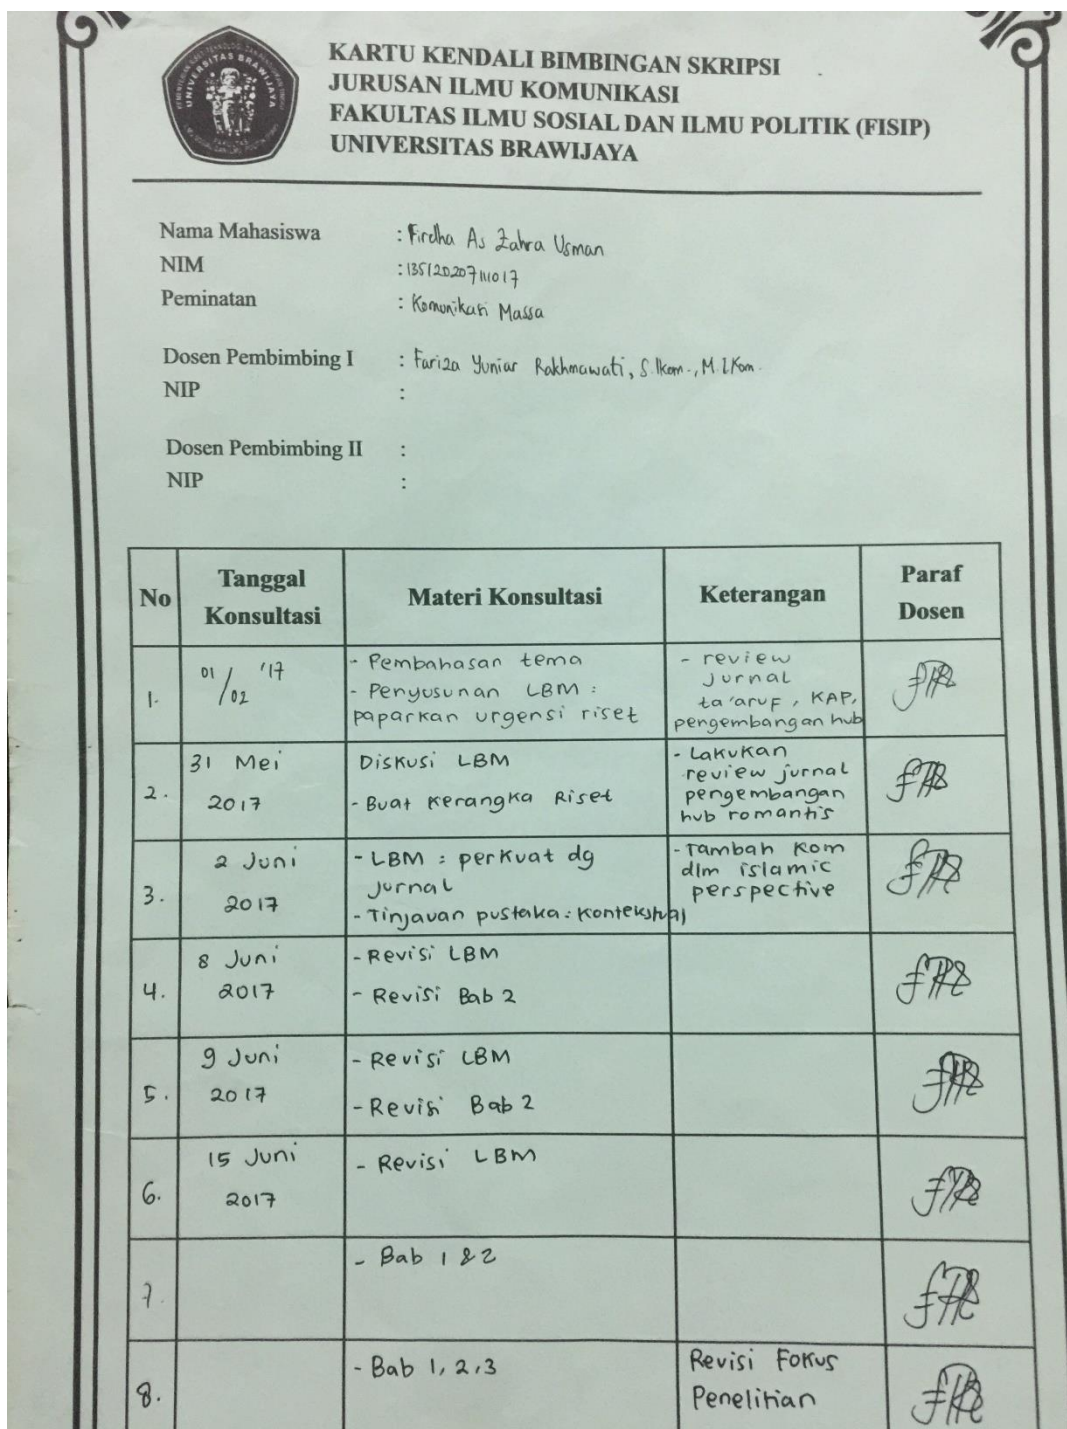 UNIVERSITAS BRAWIJAYA
KARTU KENDALI BIMBINGAN SKRIPSI
JURUSAN ILMU KOMUNIKASI
FAKULTAS ILMU SOSIAL DAN ILMU POLITIK (FISIP)
UNIVERSITAS BRAWIJAYA
Nama Mahasiswa : Firdha As Zahra Usman
NIM : 135120207111017
Peminatan : Komunikasi Massa
Dosen Pembimbing I : Fariza Yuniar Rakhmawati, S.Ikom., M.I.Kom.
NIP :
Dosen Pembimbing II :
NIP :
No Tanggal Konsultasi Materi Konsultasi Keterangan Paraf Dosen
1. 01/02 '17
- Pembahasan tema
- Penyusunan LBM :
paparkan urgensi riset
- review
jurnal
ta'aruf, KAP,
pengembangan hub
2. 31 Mei
2017
Diskusi LBM
- Buat Kerangka Riset
- Lakukan
review jurnal
pengembangan
hub romantis
3. 2 Juni
2017
- LBM : perkuat dg
jurnal
- Tinjauan pustaka : Kontekstual
- Tambah Kom
dlm islamic
perspective
4. 8 Juni
2017
- Revisi LBM
- Revisi Bab 2
5. 9 Juni
2017
- Revisi LBM
- Revisi Bab 2
6. 15 Juni
2017
- Revisi LBM
7.
- Bab 1 & 2
8.
- Bab 1, 2, 3
Revisi Fokus
Penelitian